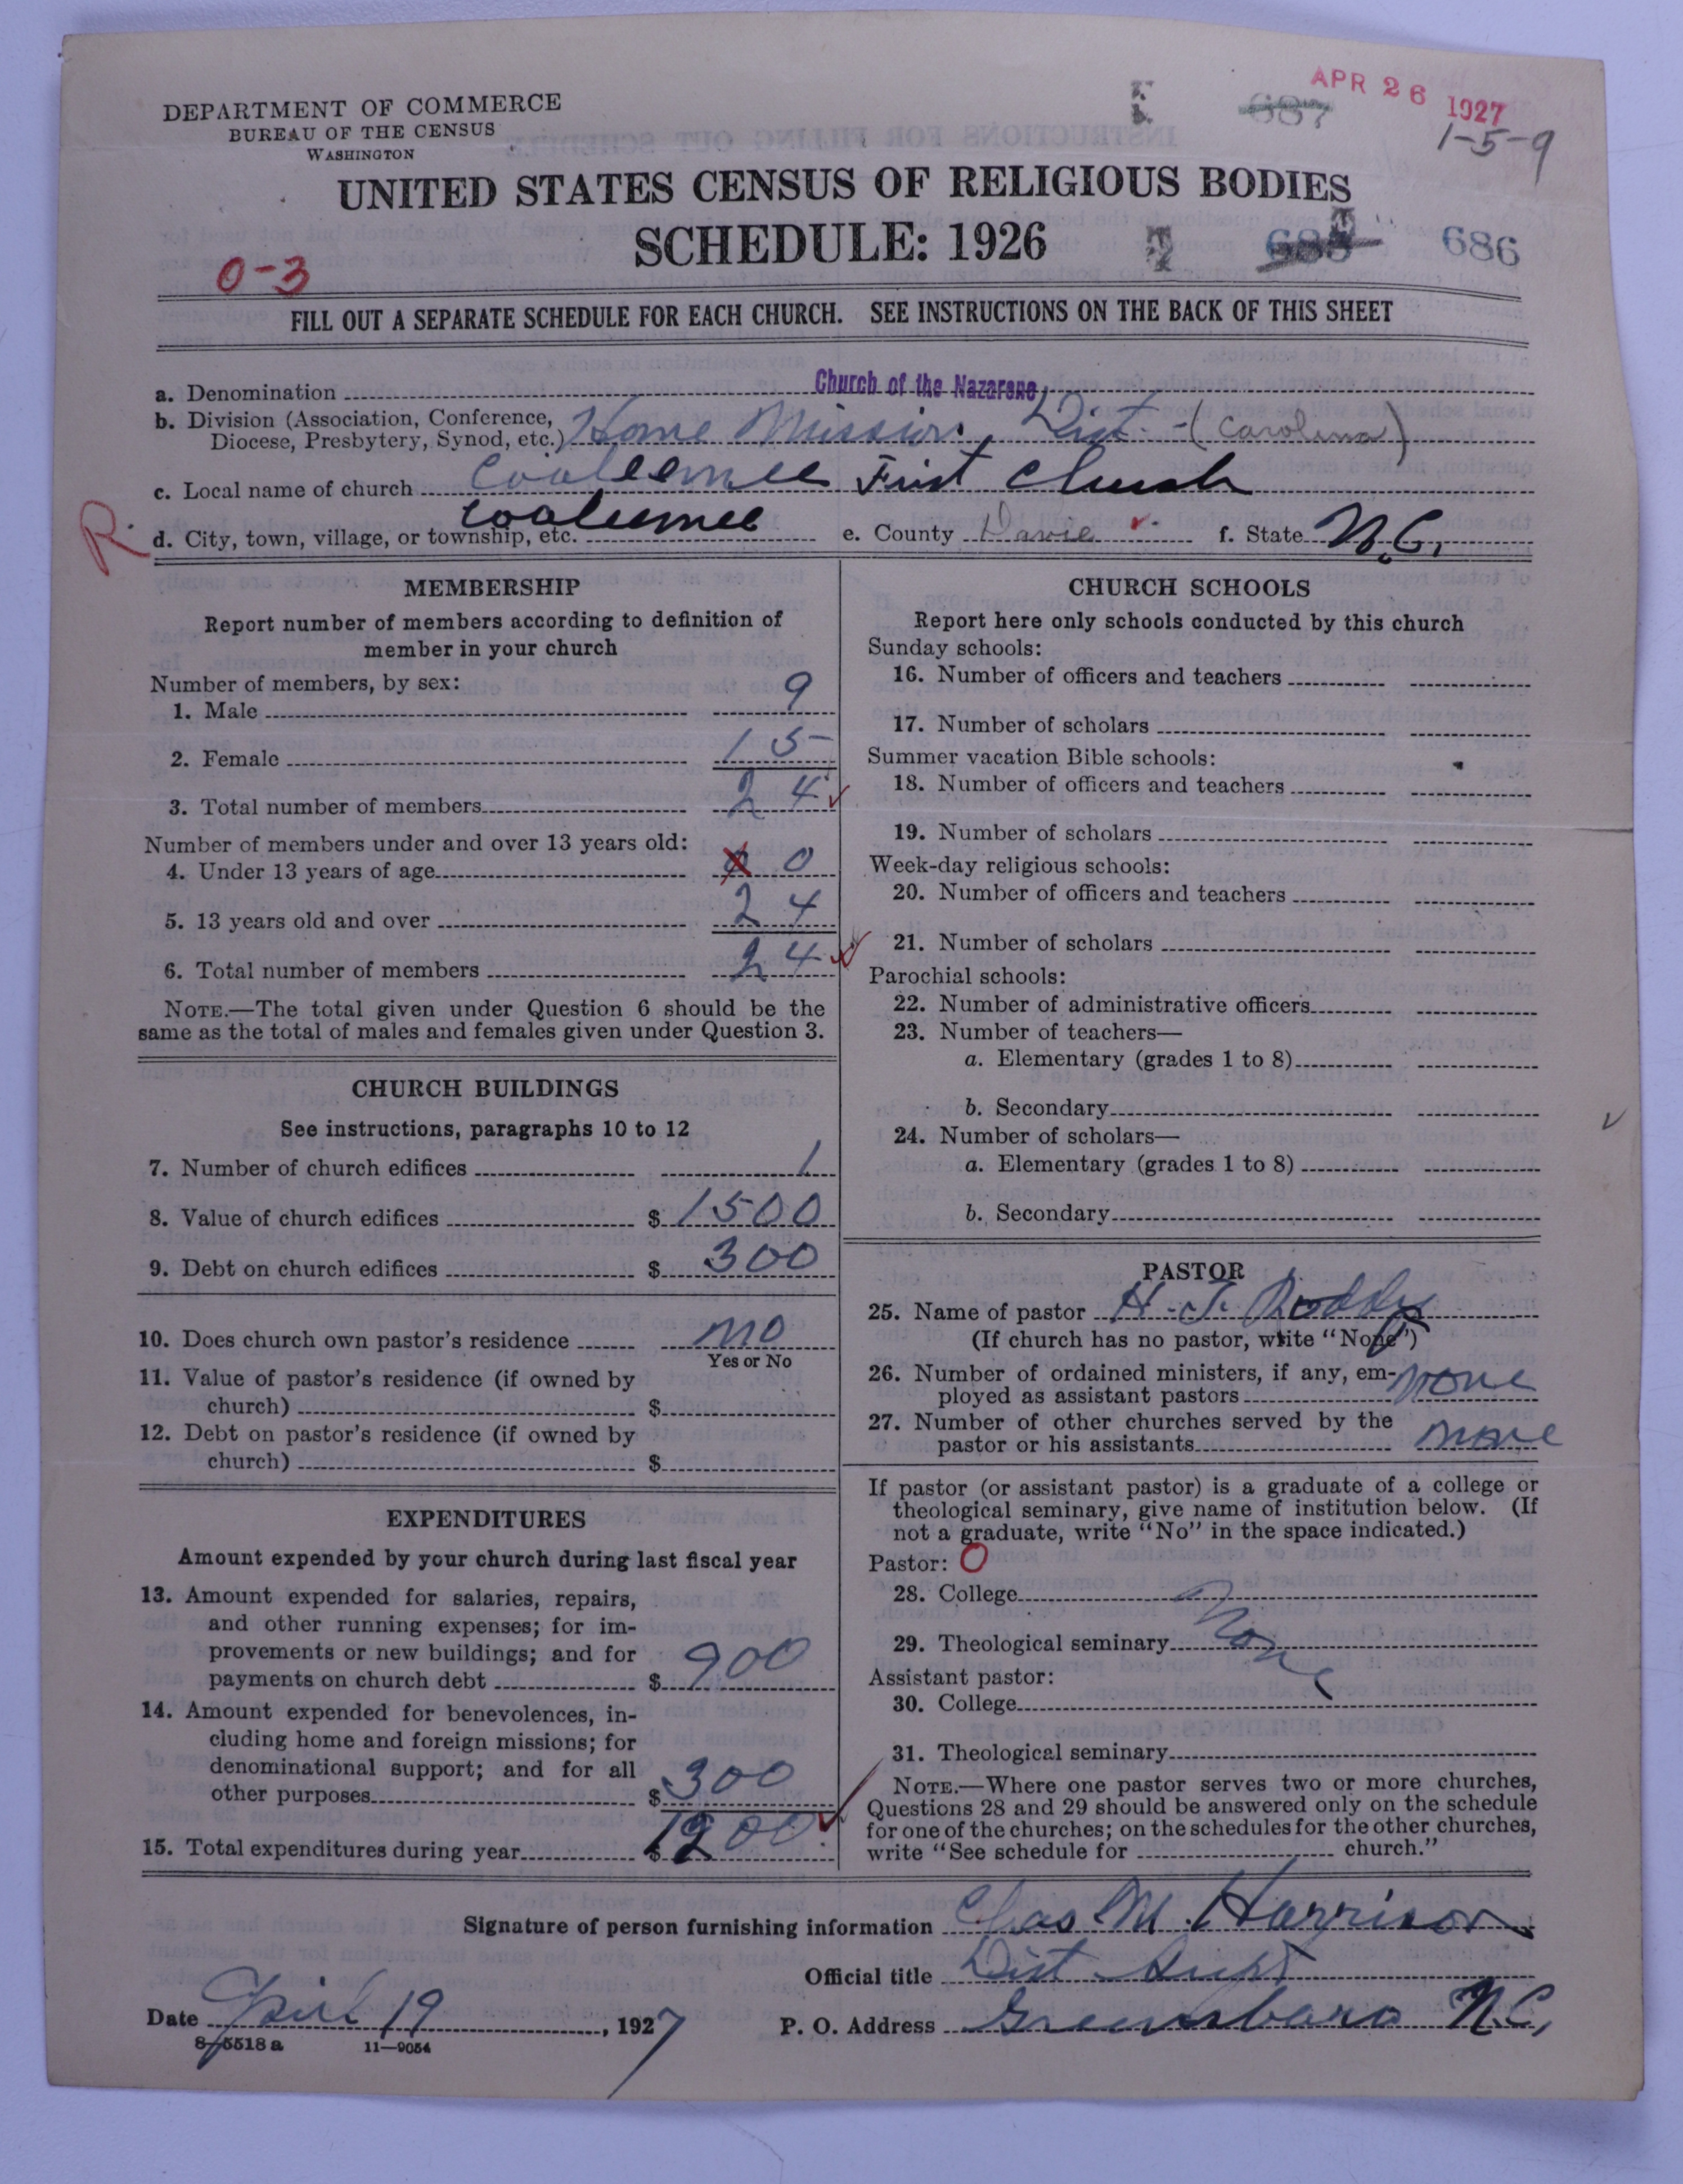 APR 26 1927
DEPARTMENT OF COMMERCE
BUREAU OF THE CENSUS
WASHINGTON
687
1-5-9
UNITED STATES CENSUS OF RELIGIOUS BODIES
SCHEDULE: 1926
686
0-3
FILL OUT A SEPARATE SCHEDULE FOR EACH CHURCH. SEE INSTRUCTIONS ON THE BACK OF THIS SHEET
a. Denomination Church of the Nazarene
b. Division (Association, Conference,
Diocese, Presbytery, Synod, etc.) Home Mission, Dist. - (Carolina)
c. Local name of church Cooleemee First Church
R.
d. City, town, village, or township, etc. Cooleemee e. County Davie f. State N.C.
MEMBERSHIP
Report number of members according to definition of
member in your church
Number of members, by sex:
1. Male 9
2. Female 15
3. Total number of members 24
Number of members under and over 13 years old:
4. Under 13 years of age 0
5. 13 years old and over 24
6. Total number of members 24
NOTE.—The total given under Question 6 should be the
same as the total of males and females given under Question 3.
CHURCH BUILDINGS
See instructions, paragraphs 10 to 12
7. Number of church edifices 1
8. Value of church edifices $ 1500
9. Debt on church edifices $ 300
10. Does church own pastor's residence no
Yes or No
11. Value of pastor's residence (if owned by
church) $
12. Debt on pastor's residence (if owned by
church) $
EXPENDITURES
Amount expended by your church during last fiscal year
13. Amount expended for salaries, repairs,
and other running expenses; for im-
provements or new buildings; and for
payments on church debt $ 900
14. Amount expended for benevolences, in-
cluding home and foreign missions; for
denominational support; and for all
other purposes $ 300
15. Total expenditures during year $ 1200
CHURCH SCHOOLS
Report here only schools conducted by this church
Sunday schools:
16. Number of officers and teachers
17. Number of scholars
Summer vacation Bible schools:
18. Number of officers and teachers
19. Number of scholars
Week-day religious schools:
20. Number of officers and teachers
21. Number of scholars
Parochial schools:
22. Number of administrative officers
23. Number of teachers—
a. Elementary (grades 1 to 8)
b. Secondary
24. Number of scholars—
a. Elementary (grades 1 to 8)
b. Secondary
PASTOR
25. Name of pastor H. J. Roddy
(If church has no pastor, write "None")
26. Number of ordained ministers, if any, em-
ployed as assistant pastors none
27. Number of other churches served by the
pastor or his assistants none
If pastor (or assistant pastor) is a graduate of a college or
theological seminary, give name of institution below. (If
not a graduate, write "No" in the space indicated.)
Pastor: O
28. College
29. Theological seminary None
Assistant pastor:
30. College
31. Theological seminary
NOTE.—Where one pastor serves two or more churches,
Questions 28 and 29 should be answered only on the schedule
for one of the churches; on the schedules for the other churches,
write "See schedule for church."
Signature of person furnishing information Chas M. Harrison
Official title Dist Supt
Date April 19, 1927 P. O. Address Greensboro N.C.
8-5518 a 11—9054